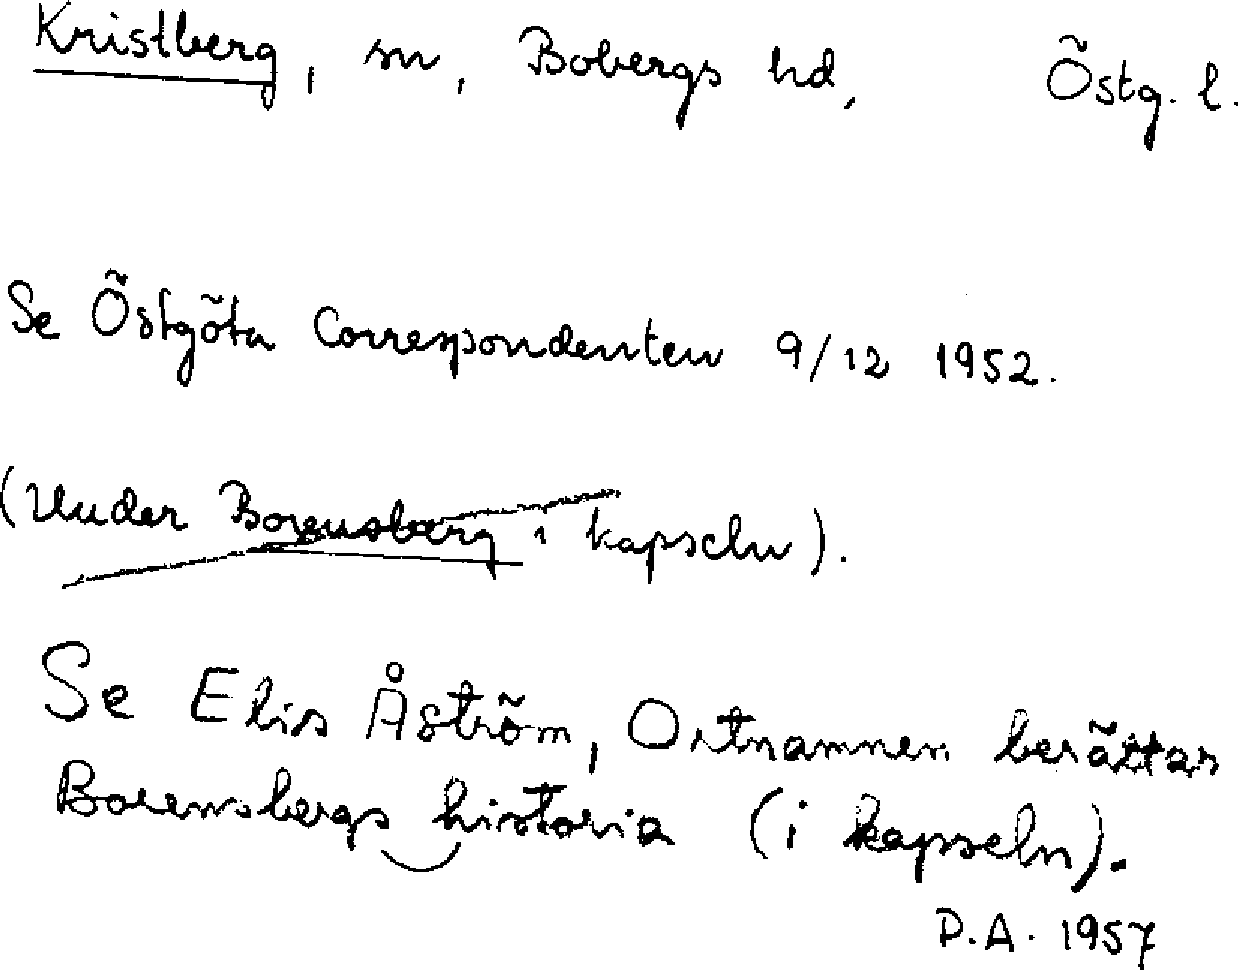 Kristberg, sn, Bobergs hd, Östg. l.
Se Östgöta Correspondenten 9/12 1952.
(Under Borensberg i kapseln).
Se Elis Åström, Ortnamnen berättar
Borensbergs historia (i kapseln).
P.A. 1957